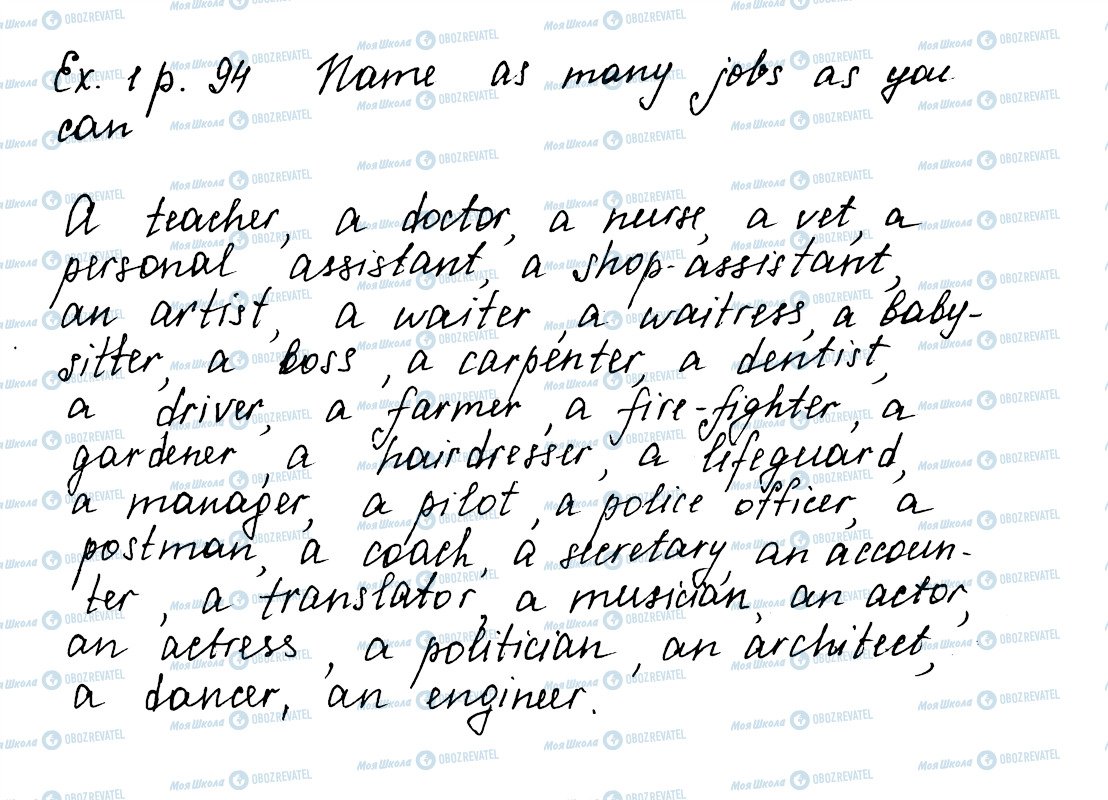 Ex. 1 p. 94 Name as many jobs as you
can
A teacher, a doctor, a nurse, a vet, a
personal assistant, a shop-assistant,
an artist, a waiter, a waitress, a baby-
sitter, a boss, a carpenter, a dentist,
a driver, a farmer, a fire-fighter, a
gardener, a hairdresser, a lifeguard,
a manager, a pilot, a police officer, a
postman, a coach, a secretary, an accoun-
ter, a translator, a musician, an actor,
an actress, a politician, an architect,
a dancer, an engineer.
Моя Школа OBOZREVATEL